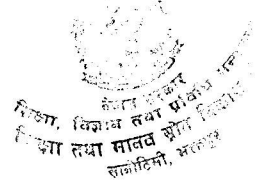 नेपाल सरकार
शिक्षा, विज्ञान तथा प्रविधि मन्त्रा
शिक्षा तथा मानव स्रोत विकास
सानोठिमी, भक्तपुर